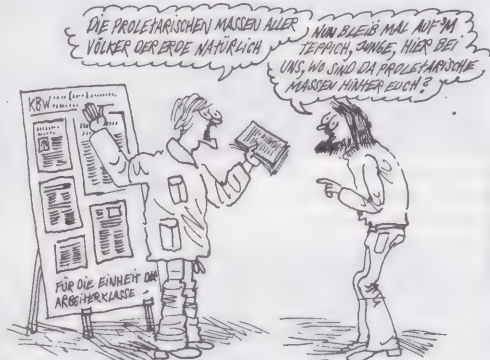 DIE PROLETARISCHEN MASSEN ALLER
VÖLKER DER ERDE NATÜRLICH
NUN BLEIB MAL AUF'M
TEPPICH, JUNGE, HIER BEI
UNS, WO SIND DA PROLETARISCHE
MASSEN HINTER EUCH?
KBW
FÜR DIE EINHEIT DER
ARBEITERKLASSE